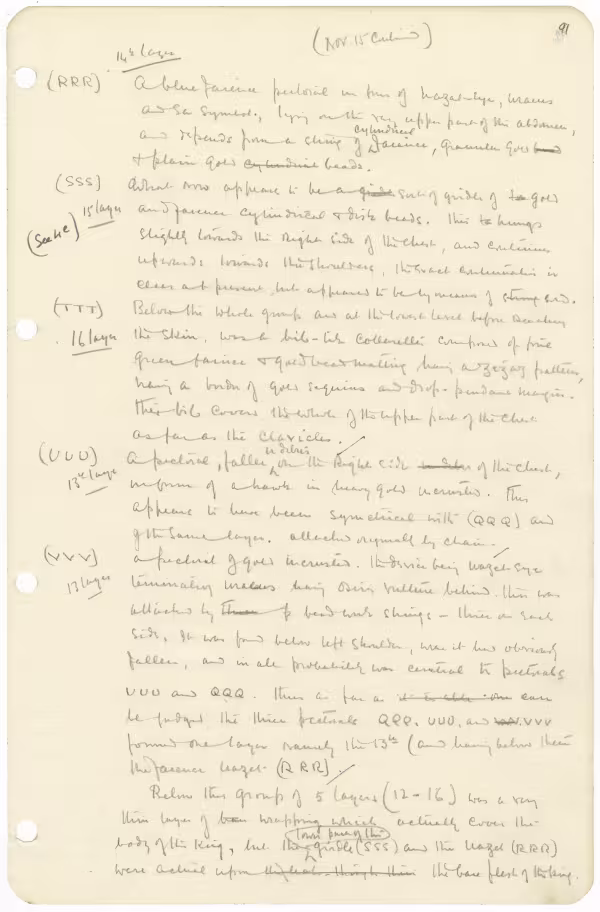 91
(Nov. 15 Continued)
14th layer
(RRR) A blue faience pectoral in form of Uazat-eye, uraeus
and Sa symbol, lying on the very upper part of the abdomen,
and depends from a string of cylindrical faience, granular gold bead
& plain gold cylindrical beads.
(SSS) What now appears to be a girdle sort of girdle of to gold
15 layer and faience cylindrical & disk beads. This to hung
(See 4C) slightly towards the Right side of the chest, and continues
upwards towards the shoulders, the exact continuation is
clear not present, but appeared to be by means of string and.
(TTT) Below the whole group and at the lowest level before reaching
16 layer the skin, was a bib-like collarette composed of fine
green faience & gold bead matting having a zigzag pattern,
having a border of gold sequins and drop-pendant margin.
This bib covers the whole of the upper part of the chest
as far as the clavicles.
(UUU) A pectoral, fallen in debris on the Right side of the chest,
13th layer in form of a hawk in heavy gold incrusted. This
appears to have been symetrical with (QQQ) and
of the same layer. attached originally by chain.
(VVV) a pectoral of gold incrusted. The device being Uazat-eye
13 layer terminating uraeus having Osiris vulture behind. This was
attached by three of bead work strings - three on each
side. It was found below left shoulder, where it had obviously
fallen, and in all probability was central to pectorals
UUU and QQQ. Thus as far as it is able one can
be judged the three pectorals QQQ, UUU, and VVV
formed one layer namely the 13th (and having below them
the faience Uazat (RRR).
Below this group of 5 layers (12-16) was a very
thin layer of wrapping which actually cover the
body of the King, but the lower part of the girdle (SSS) and the Uazat (RRR)
were actual upon the bare flesh of the King.